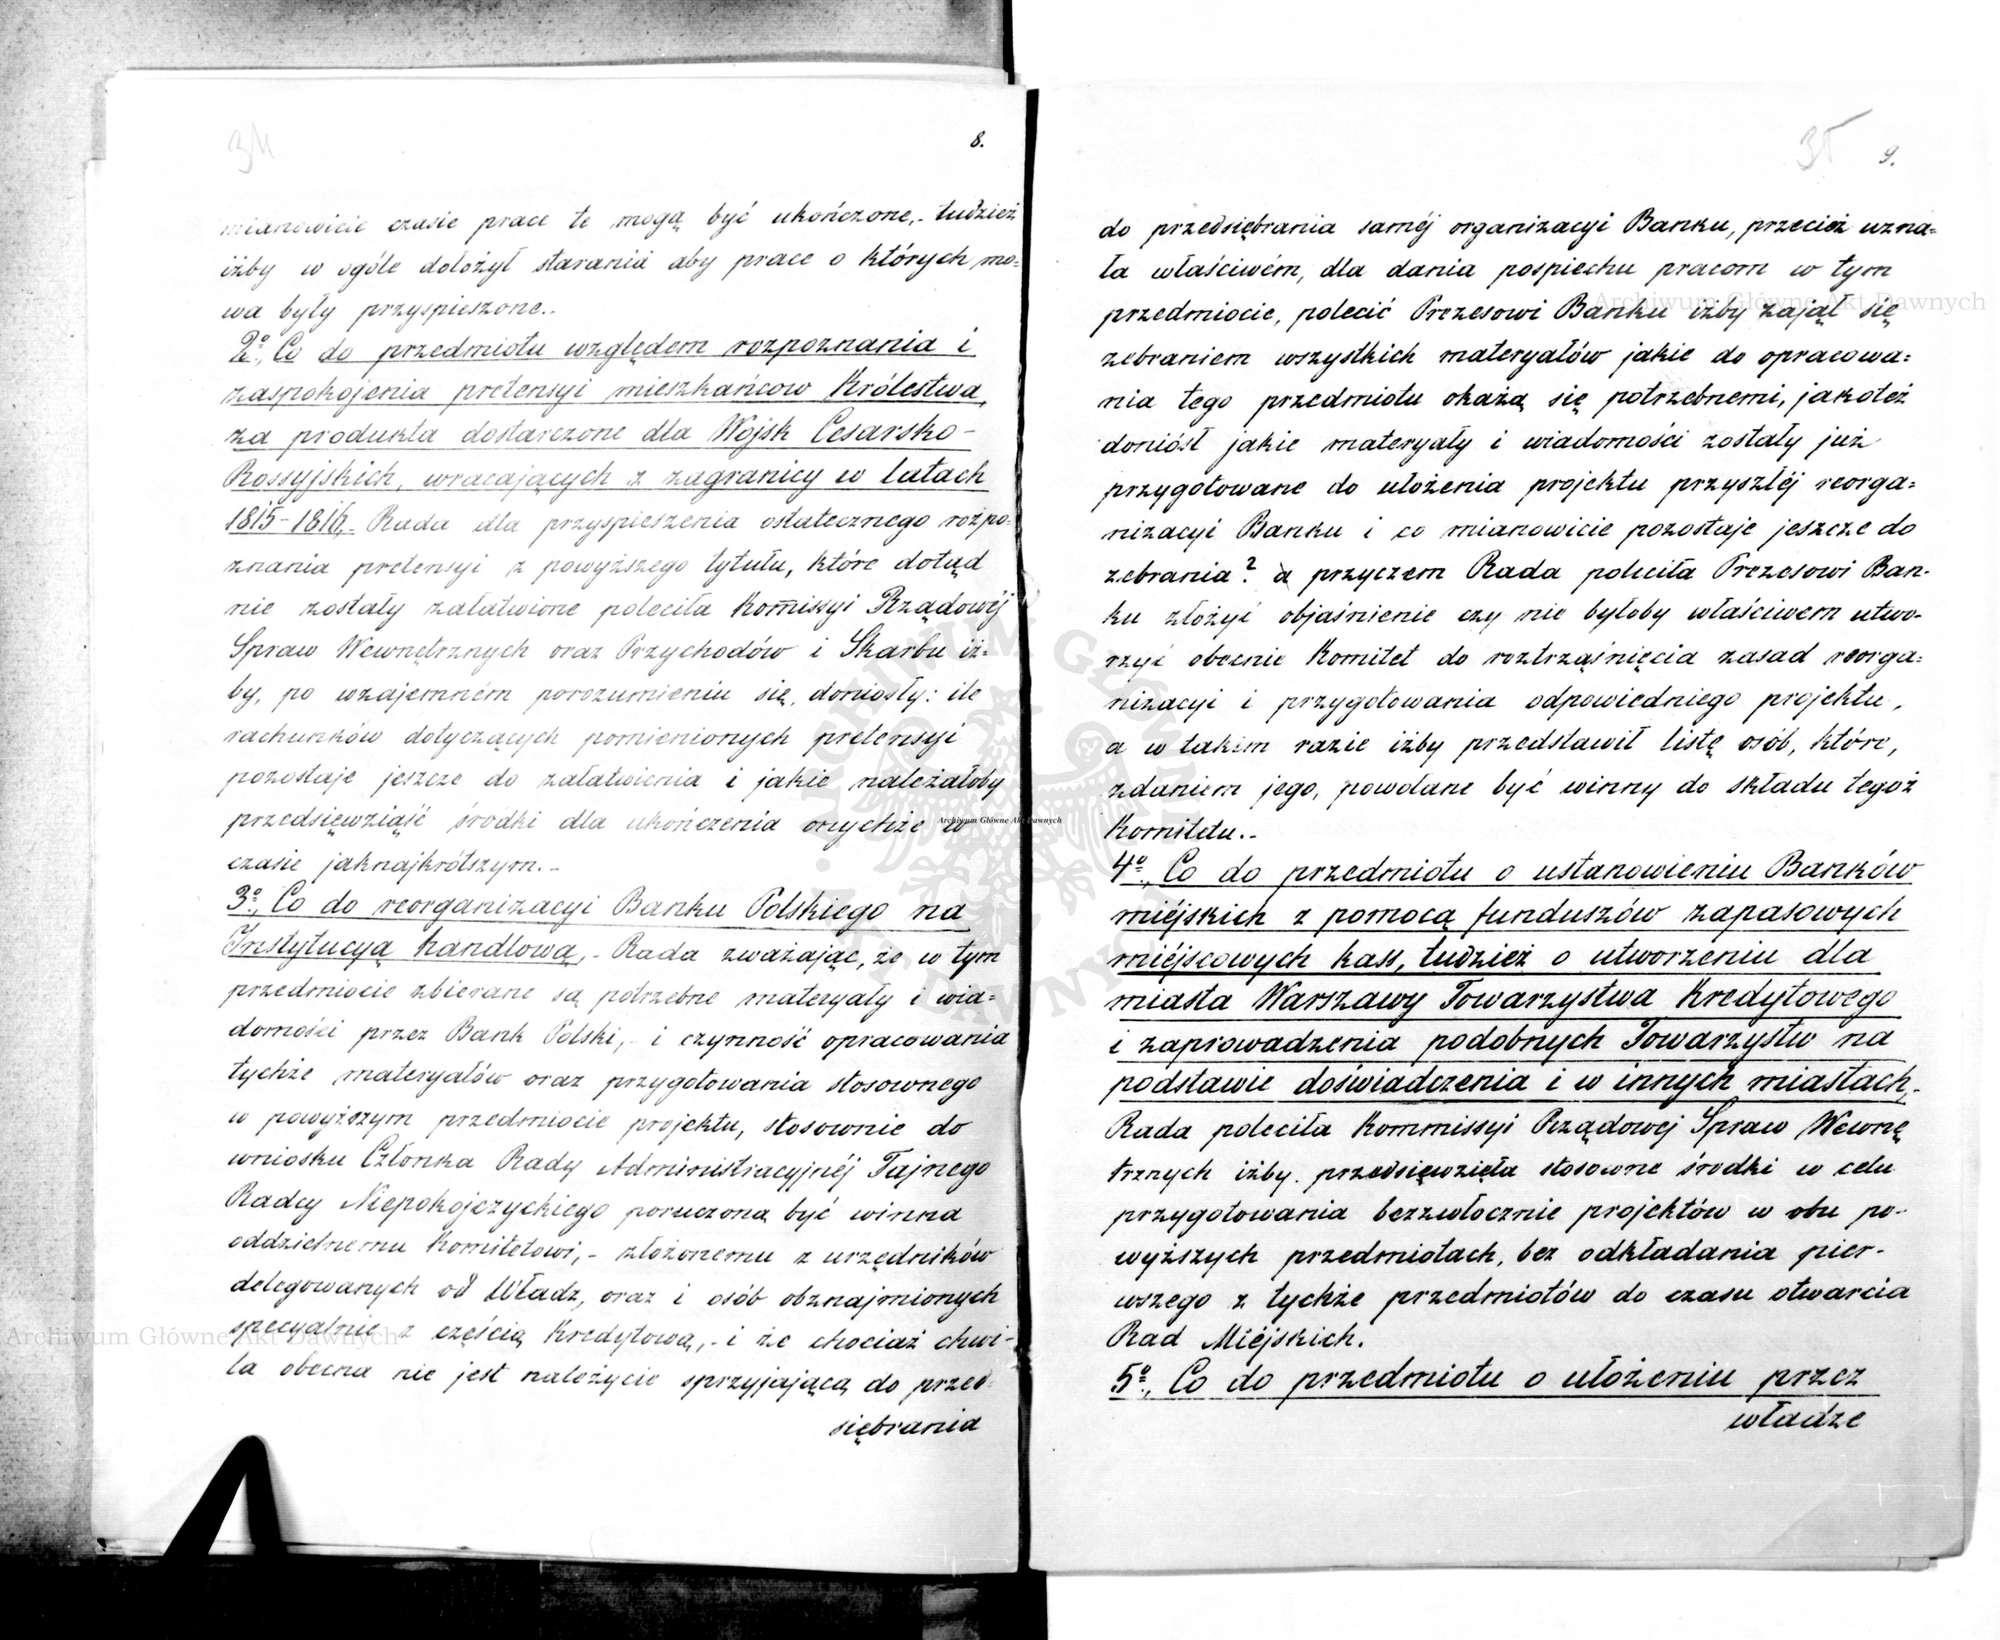 34
8.
mianowicie czasie prace te mogą być ukończone,- tudzież
iżby w ogóle dołożył starania aby prace o których mo=
wa były przyspieszone..
2º, Co do przedmiotu względem rozpoznania i
zaspokojenia pretensyi mieszkańcow Królestwa,
za produkta dostarczone dla Wojsk Cesarsko-
Rossyjskich, wracających z zagranicy w latach
1815-1816,- Rada dla przyspieszenia ostatecznego rozpo=
znania pretensyi z powyższego tytułu, które dotąd
nie zostały załatwione poleciła Kom̄issyi Rządowéj
Spraw Wewnętrznych oraz Przychodów i Skarbu iż=
by, po wzajemném porozumieniu się, doniosły: ile
rachunków dotyczących pomienionych pretensyi
pozostaje jeszcze do załatwienia i jakie należałoby
przedsięwziąść środki dla ukończenia onychże w
czasie jaknajkrótszym.-
3º, Co do reorganizacyi Banku Polskiego na
Instytucyą handlową,- Rada zważając, że w tym
przedmiocie zbierane są potrzebne materyały i wia=
domości przez Bank Polski,- i czynność opracowania
tychże materyałów oraz przygotowania stosownego
w powyższym przedmiocie projektu, stosownie do
wniosku Członka Rady Administracyjnéj Tajnego
Radcy Niepokojczyckiego poruczoną być winna
oddzielnemu Komitetowi,- złożonemu z urzędników
delegowanych od Władz, oraz i osób obznajmionych
specyalnie z częścią Kredytową,- i że chociaż chwi-
la obecna nie jest należycie sprzyjającą do przed
siębrania
35
9.
do przedsiębrania saméj organizacyi Banku, przecież uzna=
ła właściwém, dla dania pospiechu pracom w tym
przedmiocie, polecić Prezesowi Banku iżby zajął się
zebraniem wszystkich materyałów jakie do opracowa=
nia tego przedmiotu okażą się potrzebnemi, jakoteż
doniósł jakie materyały i wiadomości zostały już
przygotowane do ułożenia projektu przyszłéj reorga=
nizacyi Banku i co mianowicie pozostaje jeszcze do
zebrania? a przyczem Rada poleciła Prezesowi Ban-
ku złożyć objaśnienie czy nie byłoby właściwem utwo-
rzyć obecnie Komitet do roztrząśnięcia zasad reorga=
nizacyi i przygotowania odpowiedniego projektu,
a w takim razie iżby przedstawił listę osób, które,
zdaniem jego, powołane być winny do składu tegoż
Komitetu.-
4º, Co do przedmiotu o ustanowieniu Banków
miéjskich z pomocą funduszów zapasowych
miéjscowych kass, tudzież o utworzeniu dla
miasta Warszawy Towarzystwa Kredytowego
i zaprowadzenia podobnych Towarzystw na
podstawie doświadczenia i w innych miastach,-
Rada poleciła Kommissyi Rządowej Spraw Wewnę
trznych iżby przedsięwzięła stosowne środki w celu
przygotowania bezzwłocznie projektów w obu po-
wyższych przedmiotach, bez odkładania pier-
wszego z tychże przedmiotów do czasu otwarcia
Rad Miéjskich.
5º, Co do przedmiotu o ułożeniu przez
władze
Archiwum Główne Akt Dawnych
Archiwum Główne Akt Dawnych
Archiwum Główne Akt Dawnych